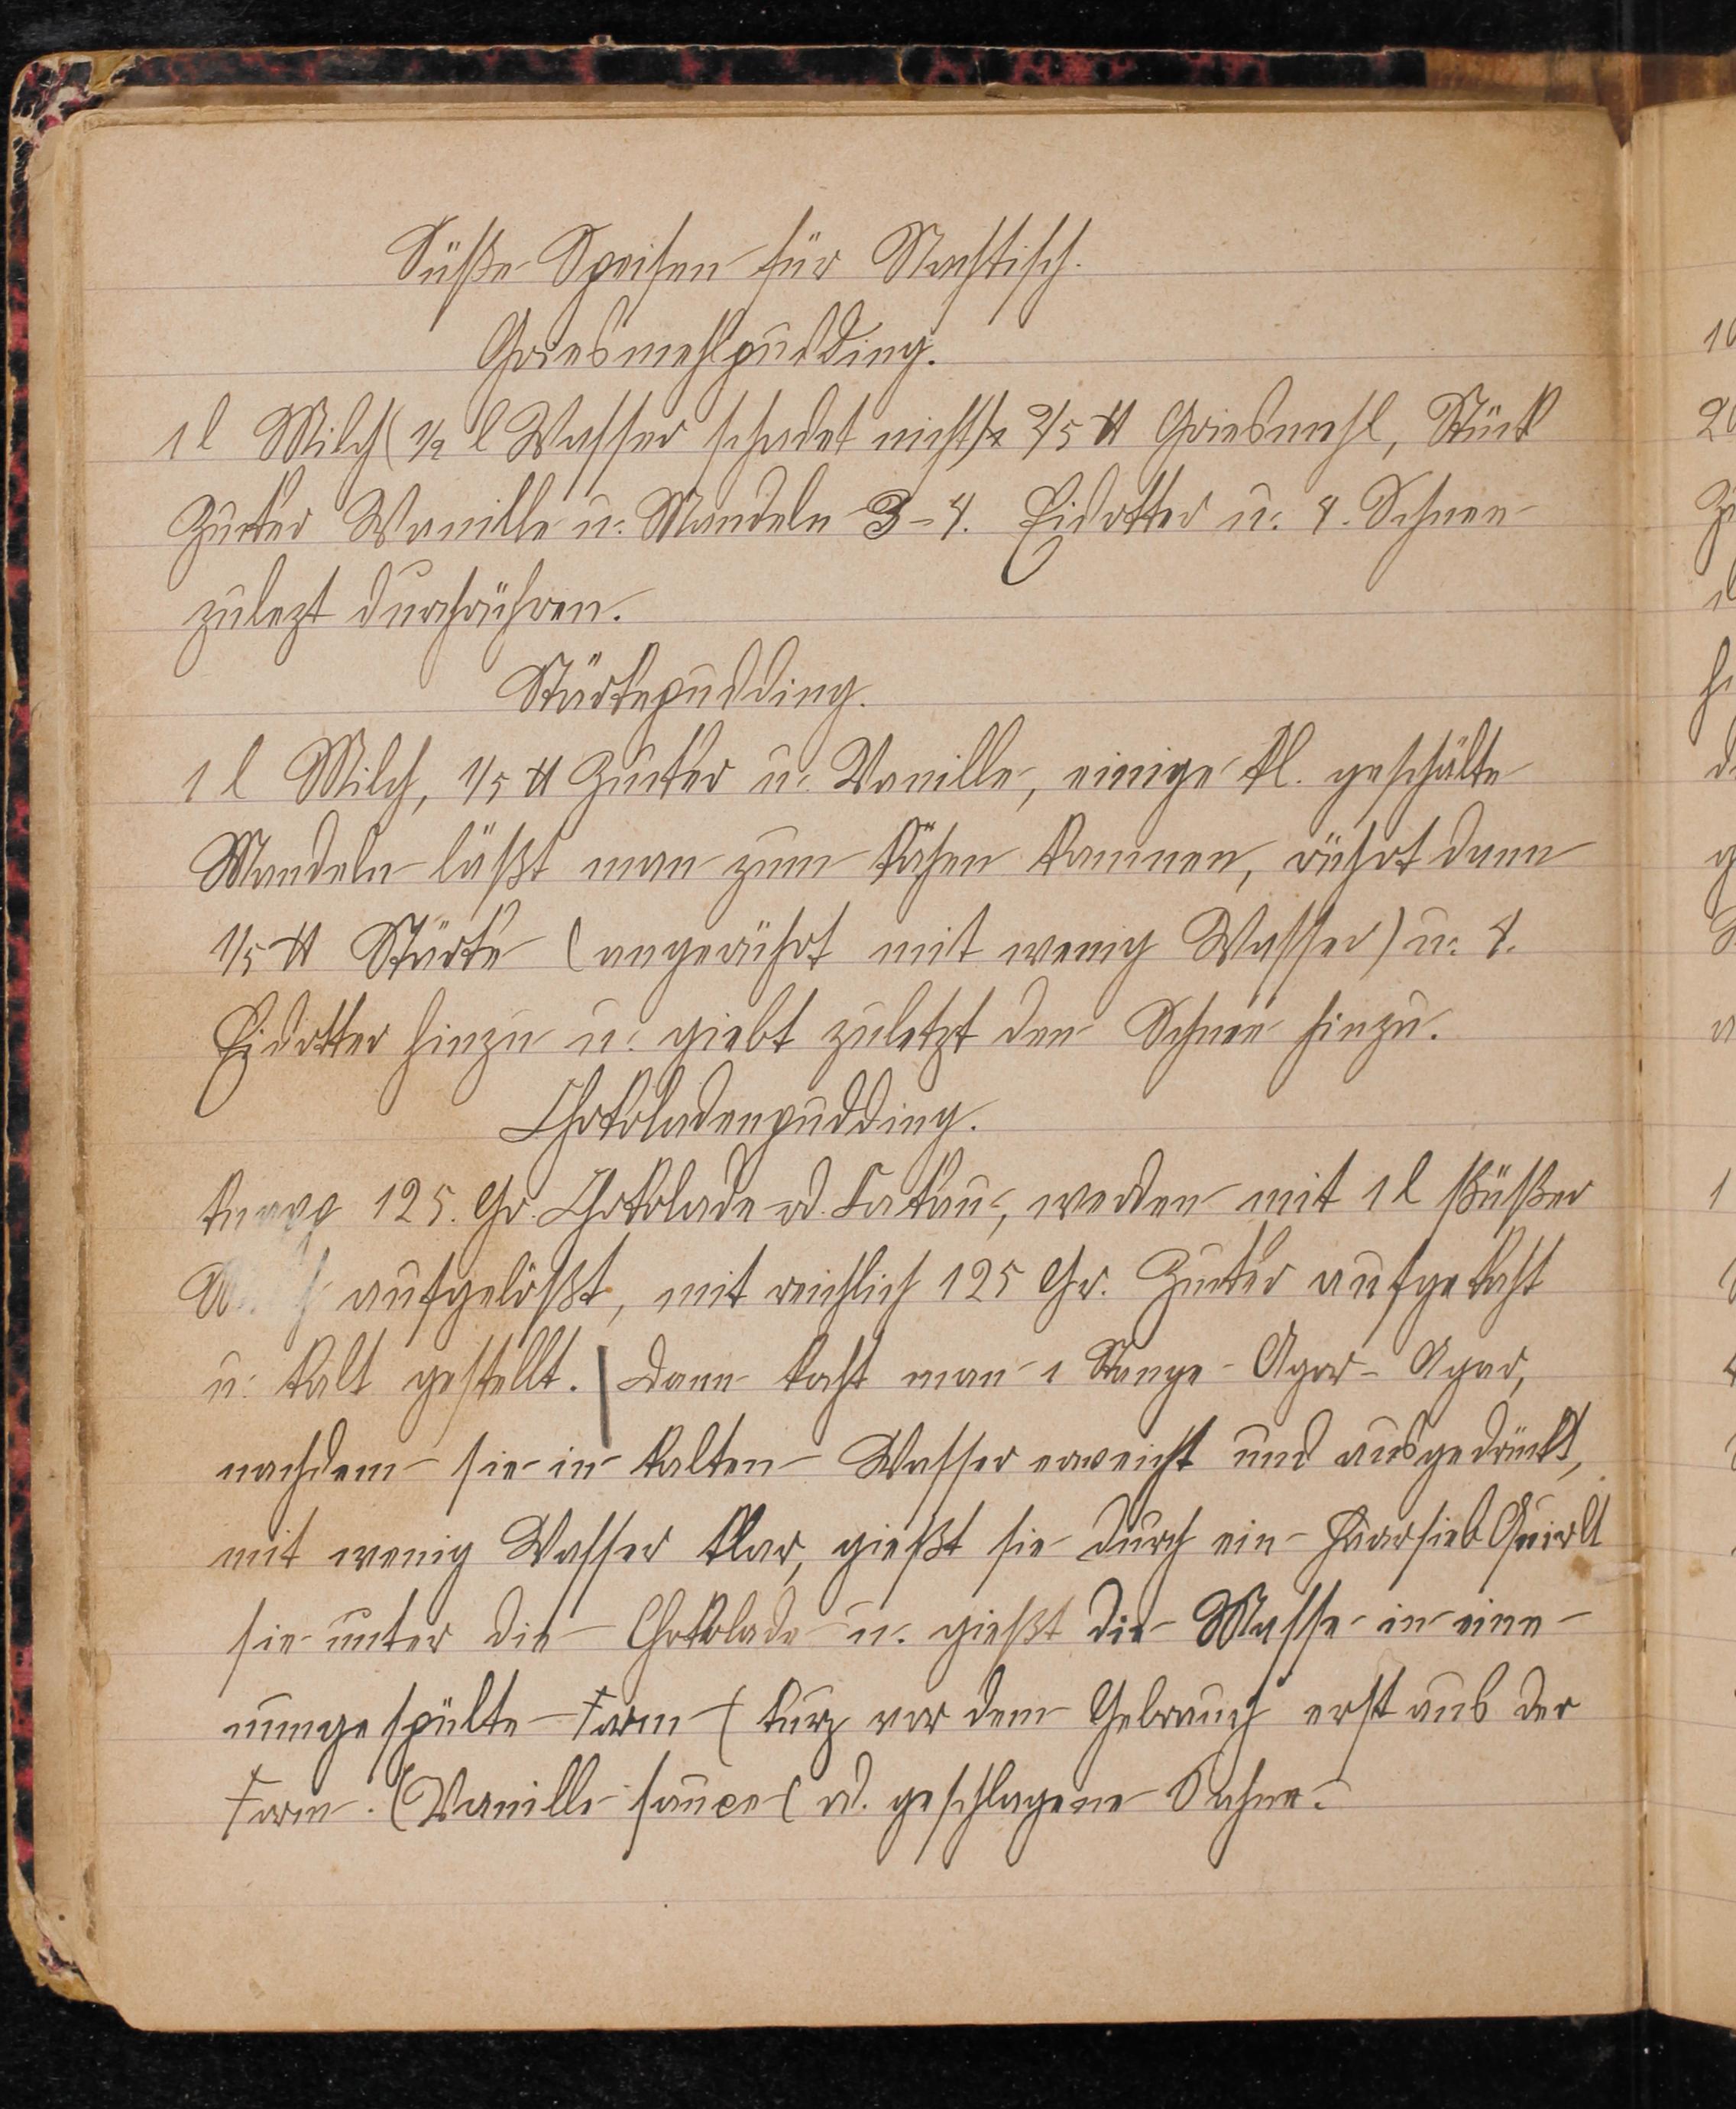 Süße Speisen für Nachtisch.
Griesmehlpudding.
1 l Milch (½ l Wasser schadet nicht) 2/5 ℔ Griesmehl, Stück
Zucker Vanille u. Mandeln 3-4. Eidotter u. 4. Schnee
zulezt durchrühren.
Stärkepudding.
1 l Milch, 1/5 ℔ Zucker u. Vanille, einige kl. geschälte
Mandeln läßt man zum kochen kommen, rührt dann
1/5 ℔ Stärke (angerührt mit wenig Wasser) u. 4.
Eidotter hinzu u. giebt zuletzt den Schnee hinzu.
Chokoladenpudding.
Knapp 125. Gr. Chokolade od. Cakau, werden mit 1 l süßer
Milch aufgelößt, mit reichlich 125 Gr. Zucker aufgekocht
u. kalt gestellt. | Dann kocht man 1 Stange Agar-Agar,
nachdem sie in kalten Wasser erweicht und ausgedrückt,
mit wenig Wasser klar, gießt sie durch ein Haarsieb Quirlt
sie unter die Chokolade u. gießt die Masse in eine
umgespülte Form (kurz vor dem Gebrauch erst aus der
Form. (Vanille sauce ( od. geschlagene Sahne.
10
20
1